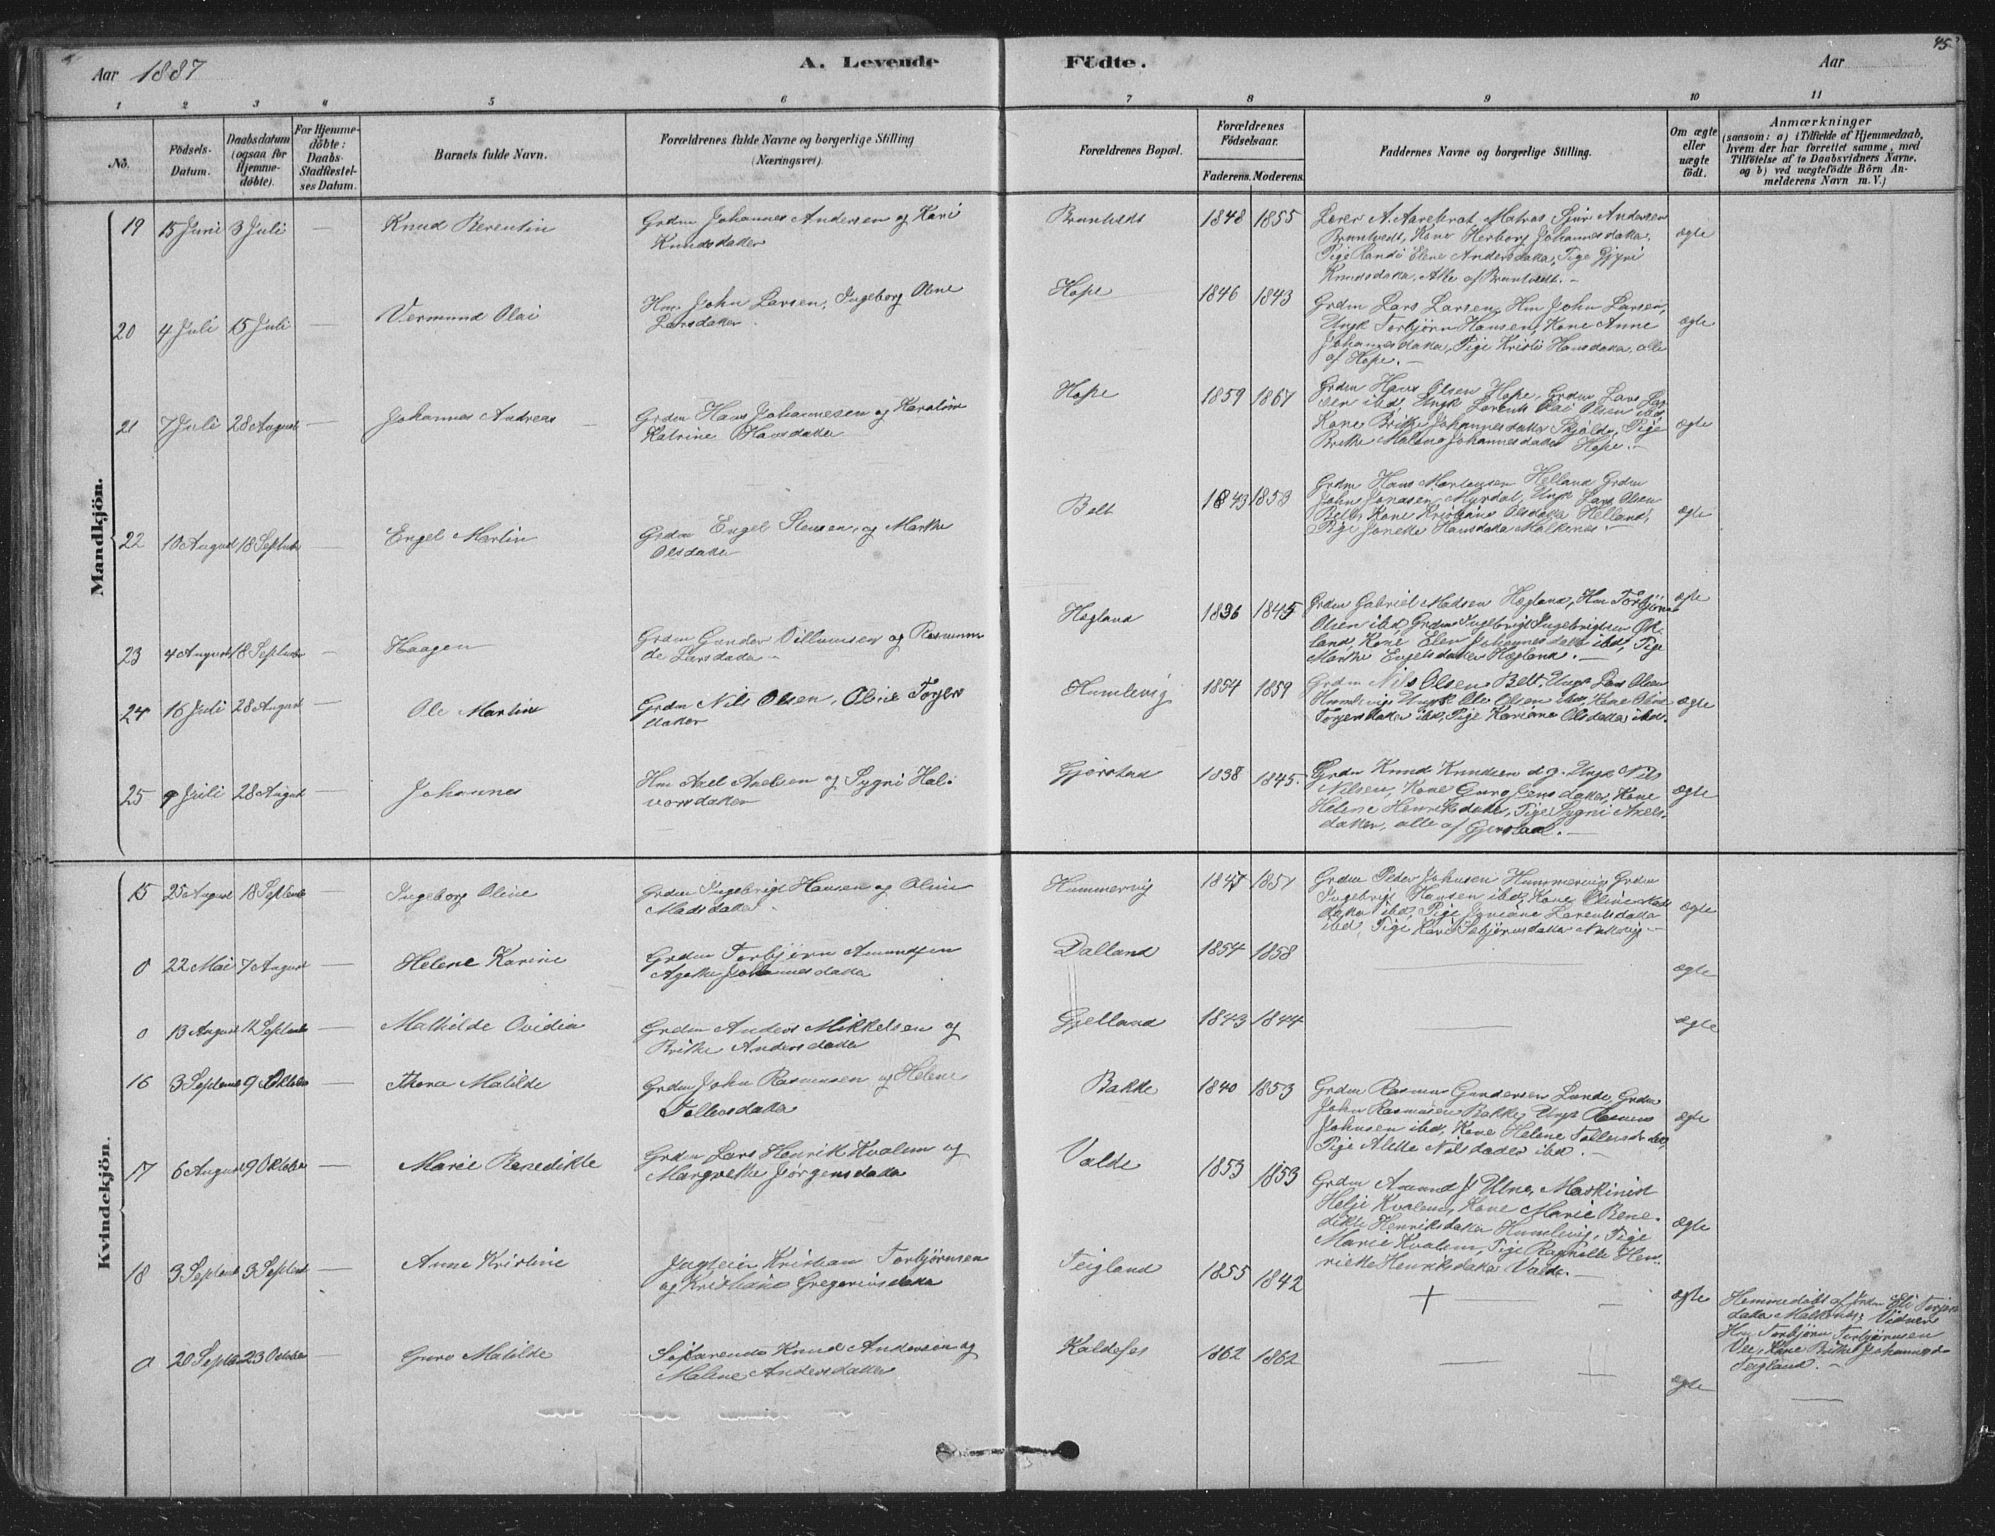 Aar 1887
A. Levende
Födte.
Aar
45
1 2 3 4 5 6 7 8 9 10 11
No.
Födsels-
Datum.
Daabsdatum
(ogsaa for
Hjemme-
døbte).
For Hjemme-
døbte:
Daabs-
Stadfæstel-
ses Datum.
Barnets fulde Navn.
Forældrenes fulde Navne og borgerlige Stilling
(Næringsvei).
Forældrenes Bopæl.
Forældrenes
Födselsaar.
Faderens. Moderens.
Faddernes Navne og borgerlige Stilling.
Om ægte
eller
uægte
født.
Anmærkninger
(saasom: a) i Tilfælde af Hjemmedaab,
hvem der har forrettet samme, med
Tilföielse af to Daabsvidners Navne.
og b) ved uægtefödte Börn An-
melderens Navn m. V.)
Mandkjön.
19 15 Juni 3 Juli — Knud Berentin
Grdm Johannes Andersen og Kari
Knudsdatter
Bruntvedt 1848 1855
Lærer A. Aarekrat Matros Sjur Andersen
Bruntvedt, Kone Herborg Johannesdatter,
Pige Randi Elene Andersdatter, Pige Gjyri
Knudsdatter, Alle af Bruntvedt. —
ægte
20 4 Juli 15 Juli — Vermund Olai
Hm. John Larsen, Ingeborg Oline
Larsdatter
Hope 1846 1843
Grdm Lars Larsen, Hm John Larsen,
Ungk Torbjörn Hansen, Kone Anne
Johannesdatter, Pige Kristi Hansdatter, alle
af Hope. —
ægte
21 7 Juli 28 August — Johannes Andreas
Grdm Hans Johannesen og Karoline
Katrine Hansdatter
Hope 1859 1861
Grdm Hans Olsen Hope, Grdm Lars Lar
sen ibd, Ungk Lorents Olai Olsen ibd,
Kone Brithe Johannesdatter Skjölde, Pige
Brithe Malene Johannesdatter Hope. —
ægte
22 10 August 18 Septemb — Engel Martin
Grdm Engel Stensen og Marthe
Olsdatter
Belt 1843 1853
Grdm Hans Mortensen Helland Grdm
John Jonassen Myrdal, Ungk Lars Olsen
Belt, Kone Kristiane Olsdatter Helland,
Pige Jonette Hansdatter Malkenes. —
ægte
23 4 August 18 Septemb — Haagen
Grdm Gunder Villumsen og Rasmun
de Larsdatter —
Hægland 1836 1845
Grdm Gabriel Madsen Hægland, Hm Torbjörn
Olsen ibd, Grdm Ingebrigt Ingebrigtsen Øk-
land, Kone Elen Johannesdatter ibd, Pige
Marthe Engelsdatter Hægland. —
ægte
24 16 Juli 28 August — Ole Martin
Grdm Nils Olsen, Oline Torjers
datter
Humlevig 1854 1859
Grdm Nils Olsen Belt, Ungk Lars Olsen
Humlevig, Ungk Ole Olsen ibd, Kone Oline
Torjersdatter ibd, Pige Kariane Olsdatter ibd.
ægte
25 9 Juli 28 August — Johannes
Hm Axel Axelsen og Sygni Hal-
vorsdatter
Gjerstad 1838 1845.
Grdm Knud Knudsen d.y. Ungk Nils
Nilsen, Kone Guro Jensdatter, Kone
Helene Henriksdatter, Pige Sygni Axels-
datter, alle af Gjerstad. —
ægte
Kvindekjön.
15 25 August 18 Septemb — Ingeborg Oline
Grdm Ingebrigt Hansen og Oline
Madsdatter
Hummervig 1847 1851
Grdm Peder Johnsen Hummervig, Grdm
Ingebrigt Hansen ibd, Kone Oline Mads
datter ibd, Pige Janiane Larentsdatter
ibd, Pige Kari Sebjörnsdatter Nakvig —
ægte
0 22 Mai 7 August — Helene Karine
Grdm Torbjørn Amundsen
Agathe Johannesdatter
Dalland 1854 1858 — ægte
0 13 August 12 Septemb — Mathilde Ovidia
Grdm Anders Mikkelsen og
Brithe Andersdatter
Gjelland 1843 1844 — ægte
16 3 Septemb 9 Oktober — Thora Matilde
Grdm John Rasmussen og Helene
Tollevsdatter
Bakke 1840 1853
Grdm Rasmus Gundersen Lunde, Grdm
John Rasmusen Bakke, Ungk Rasmus
Johnsen ibd, Kone Helene Tollevsd. ibd,
Pige Alethe Nilsdatter ibd. —
ægte
17 6 August 9 Oktober — Marie Benedikte
Grdm Lars Henrik Kvalem og
Margrethe Jörgensdatter
Valde 1853 1853
Grdm Amund J. Utne, Maskinist
Helje Kvalem, Kone Marie Bene-
dikte Henriksdatter Humlevig, Pige
Marie Kvalem, Pige Ragnilde Hen-
riette Henriksdatter Valde. —
ægte
18 3 Septemb 3 Septemb — Anne Kristine
Inderst Kristian Torbjörnsen
og Kristiane Gregoriusdatter
Teigland 1855 1842 + — ægte
Hjemmedöbt af Jordm Eli Torjers
datter Malkenes; Vidner
Hm Torbjörn Torbjörnsen
Vee, Kone Brithe Johannesd.
Teigland. —
0 20 Septb 23 Oktober — Guro Matilde
Separende Knud Andersen og
Malene Andersdatter
Kaldefos 1862 1862 — ægte